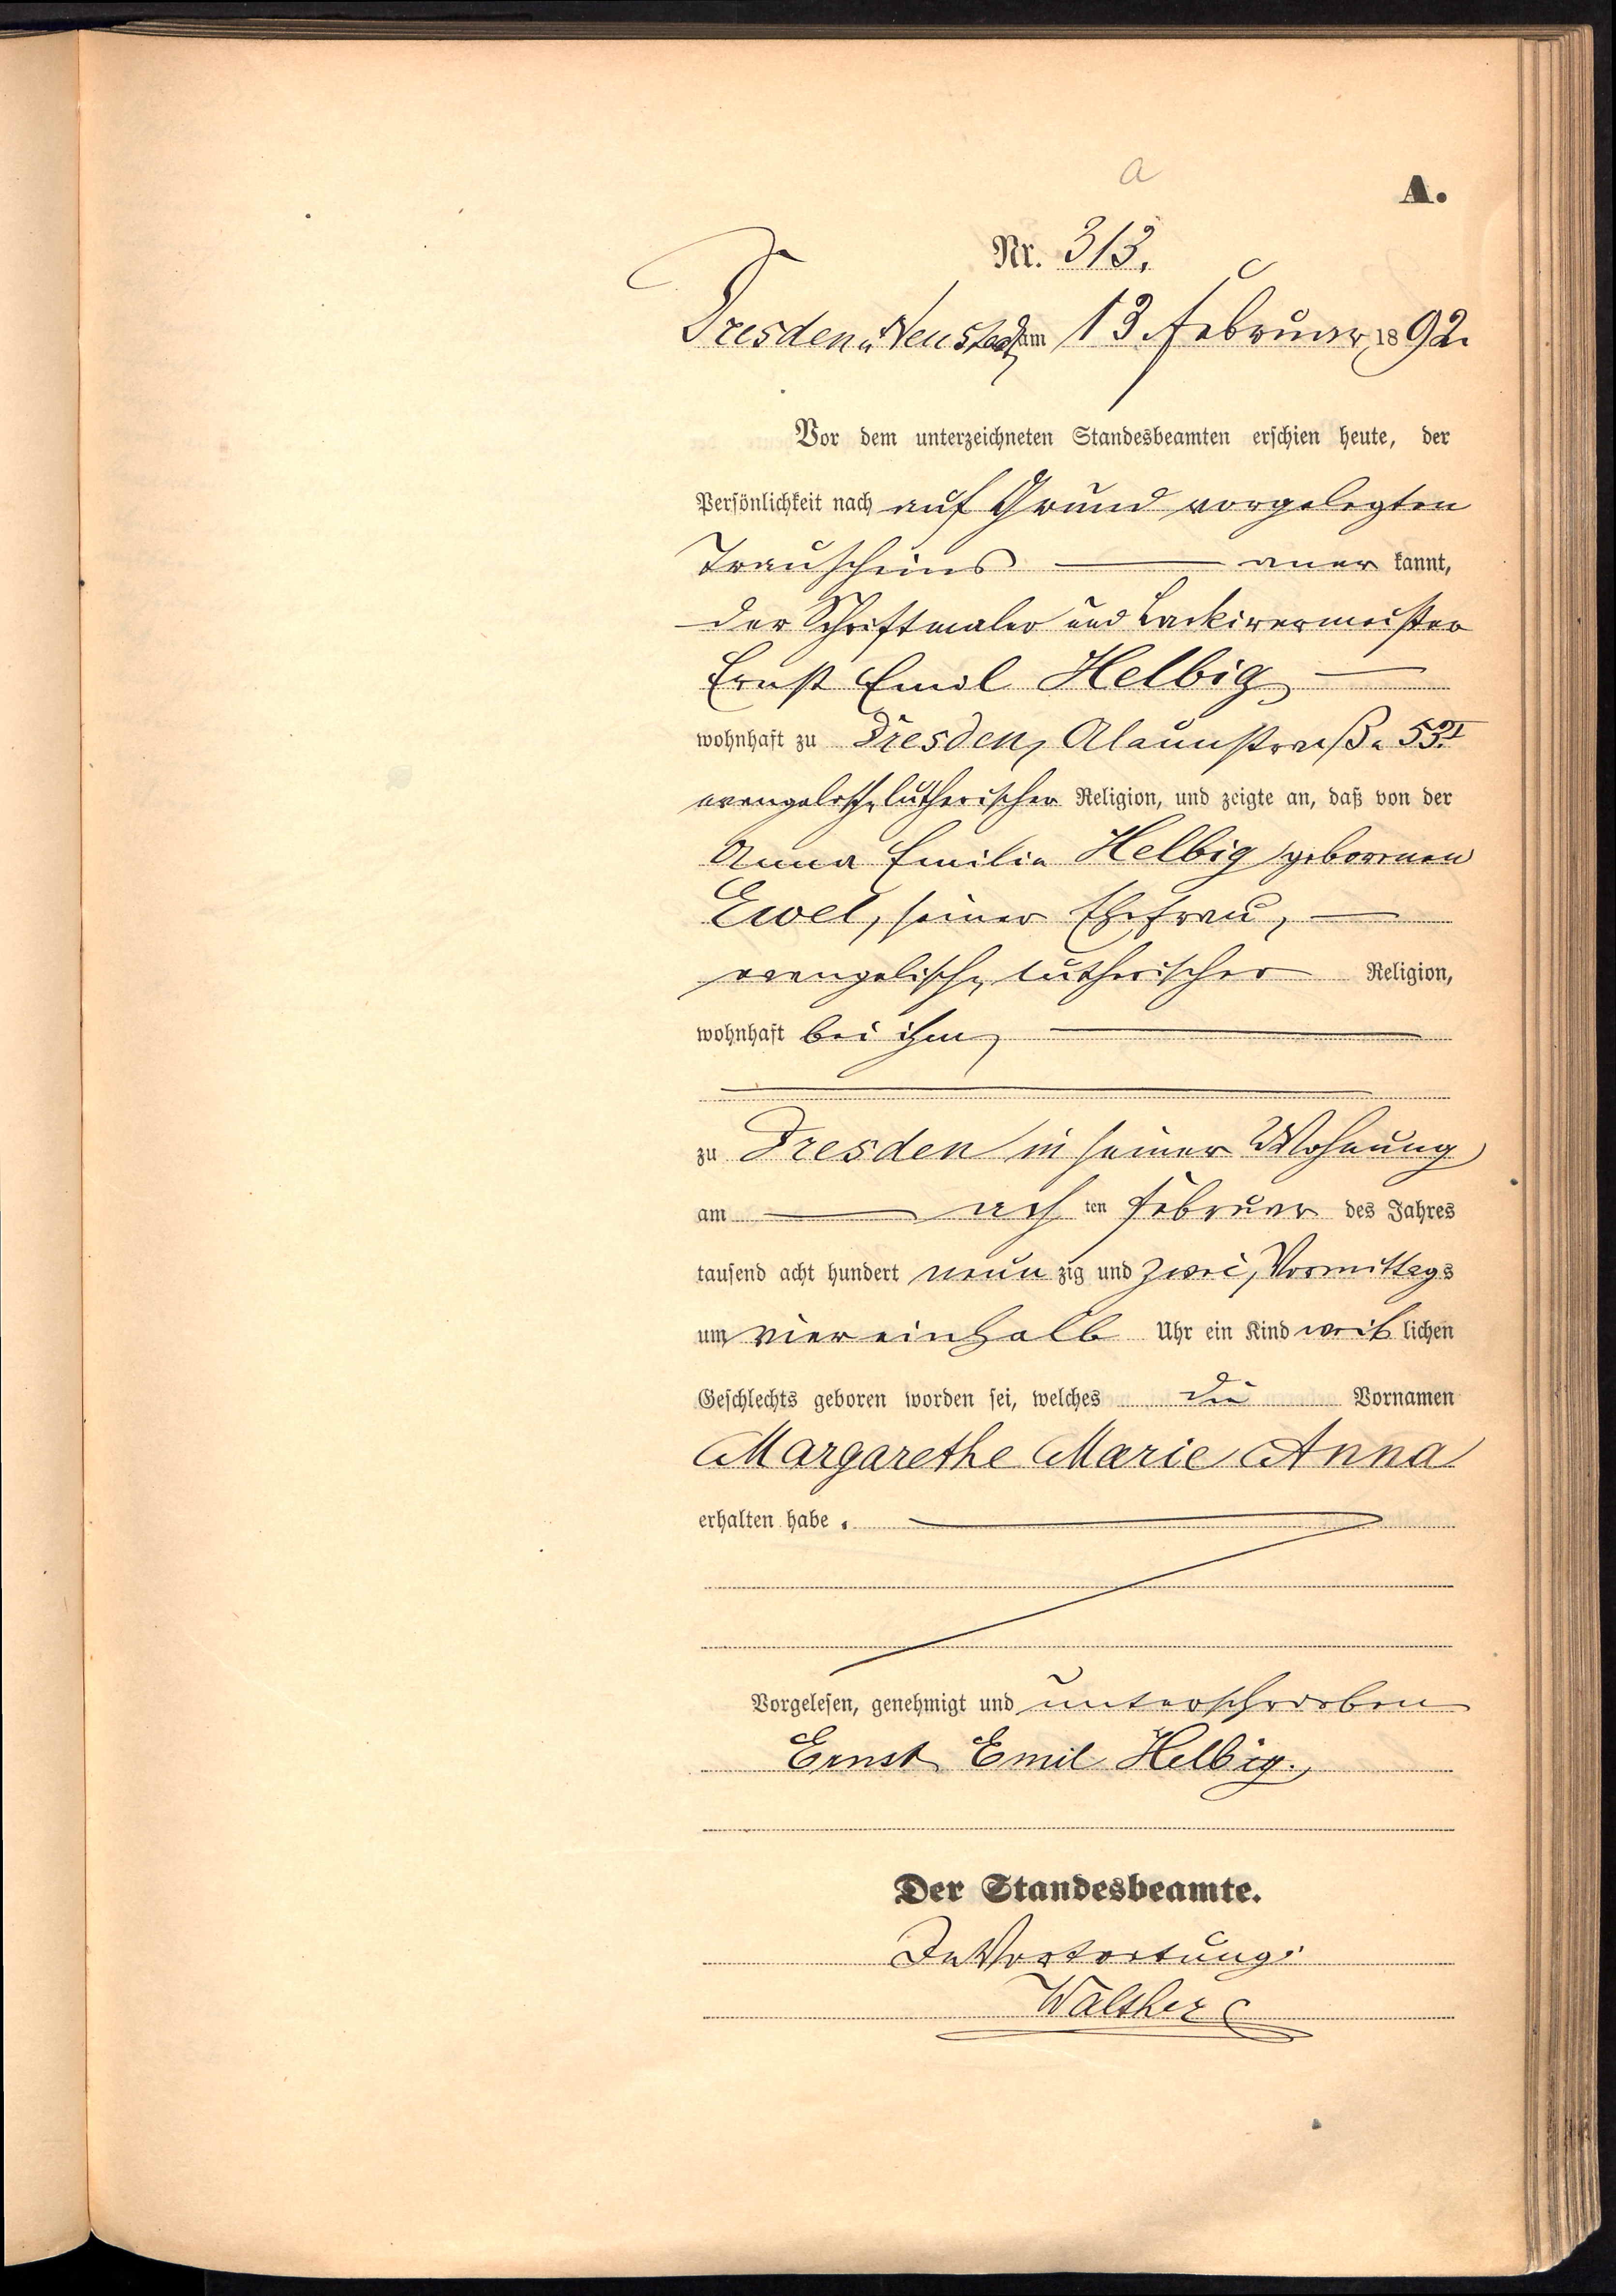 a
A.
Nr. 313.
Dresden-Neustadt, am 13. Februar 1892.
Vor dem unterzeichneten Standesbeamten erschien heute, der
Persönlichkeit nach auf Grund vorgelegten
Trauscheins — anerkannt,
der Schriftmaler und Lackirermeister
Ernst Emil Helbig —
wohnhaft zu Dresden, Alaunstraße 53.I
evangelisch-lutherischer Religion, und zeigte an, daß von der
Anna Emilie Helbig geborenen
Ewel, seiner Ehefrau, —
evangelisch-lutherischer Religion,
wohnhaft bei ihm, —
zu Dresden in seiner Wohnung
am — achten Februar des Jahres
tausend acht hundert neunzig und zwei, Vormittags
um viereinhalb Uhr ein Kind weiblichen
Geschlechts geboren worden sei, welches die Vornamen
Margarethe Marie Anna
erhalten habe.
Vorgelesen, genehmigt und unterschrieben
Ernst Emil Helbig.
Der Standesbeamte.
In Vertretung:
Walther